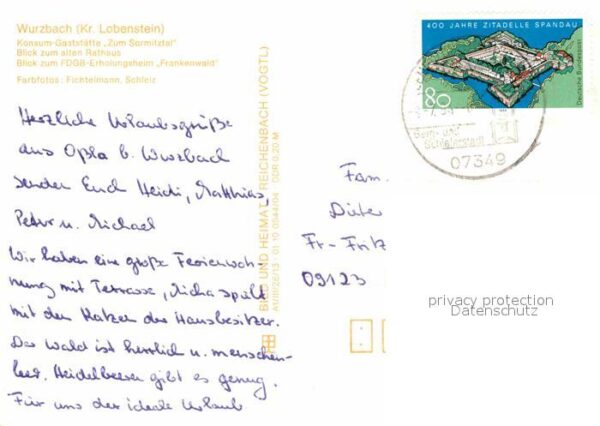 Wurzbach (Kr. Lobenstein)
Konsum-Gaststätte „Zum Sormitztal"
Blick zum alten Rathaus
Blick zum FDGB-Erholungsheim „Frankenwald"
Farbfotos: Fichtelmann, Schleiz
Herzliche Urlaubsgrüße
aus Oßla b. Wurzbach
senden Euch Heidi, Matthias,
Peter u. Michael
Wir haben eine große Ferienwoh-
nung mit Terrasse, Micha spielt
mit den Katzen der Hausbesitzer.
Der Wald ist herrlich u. menschen-
leer. Heidelbeeren gibt es genug.
Für uns der ideale Urlaub
BILD UND HEIMAT REICHENBACH (VOGTL)
A1/III/26/13 01 10 0544/04 DDR 0,20 M
400 JAHRE ZITADELLE SPANDAU
80
Deutsche Bundespost
Berg- und
Schieferstadt
07349
Fam.
Dieter
Fr-Fritz
09123
privacy protection
Datenschutz